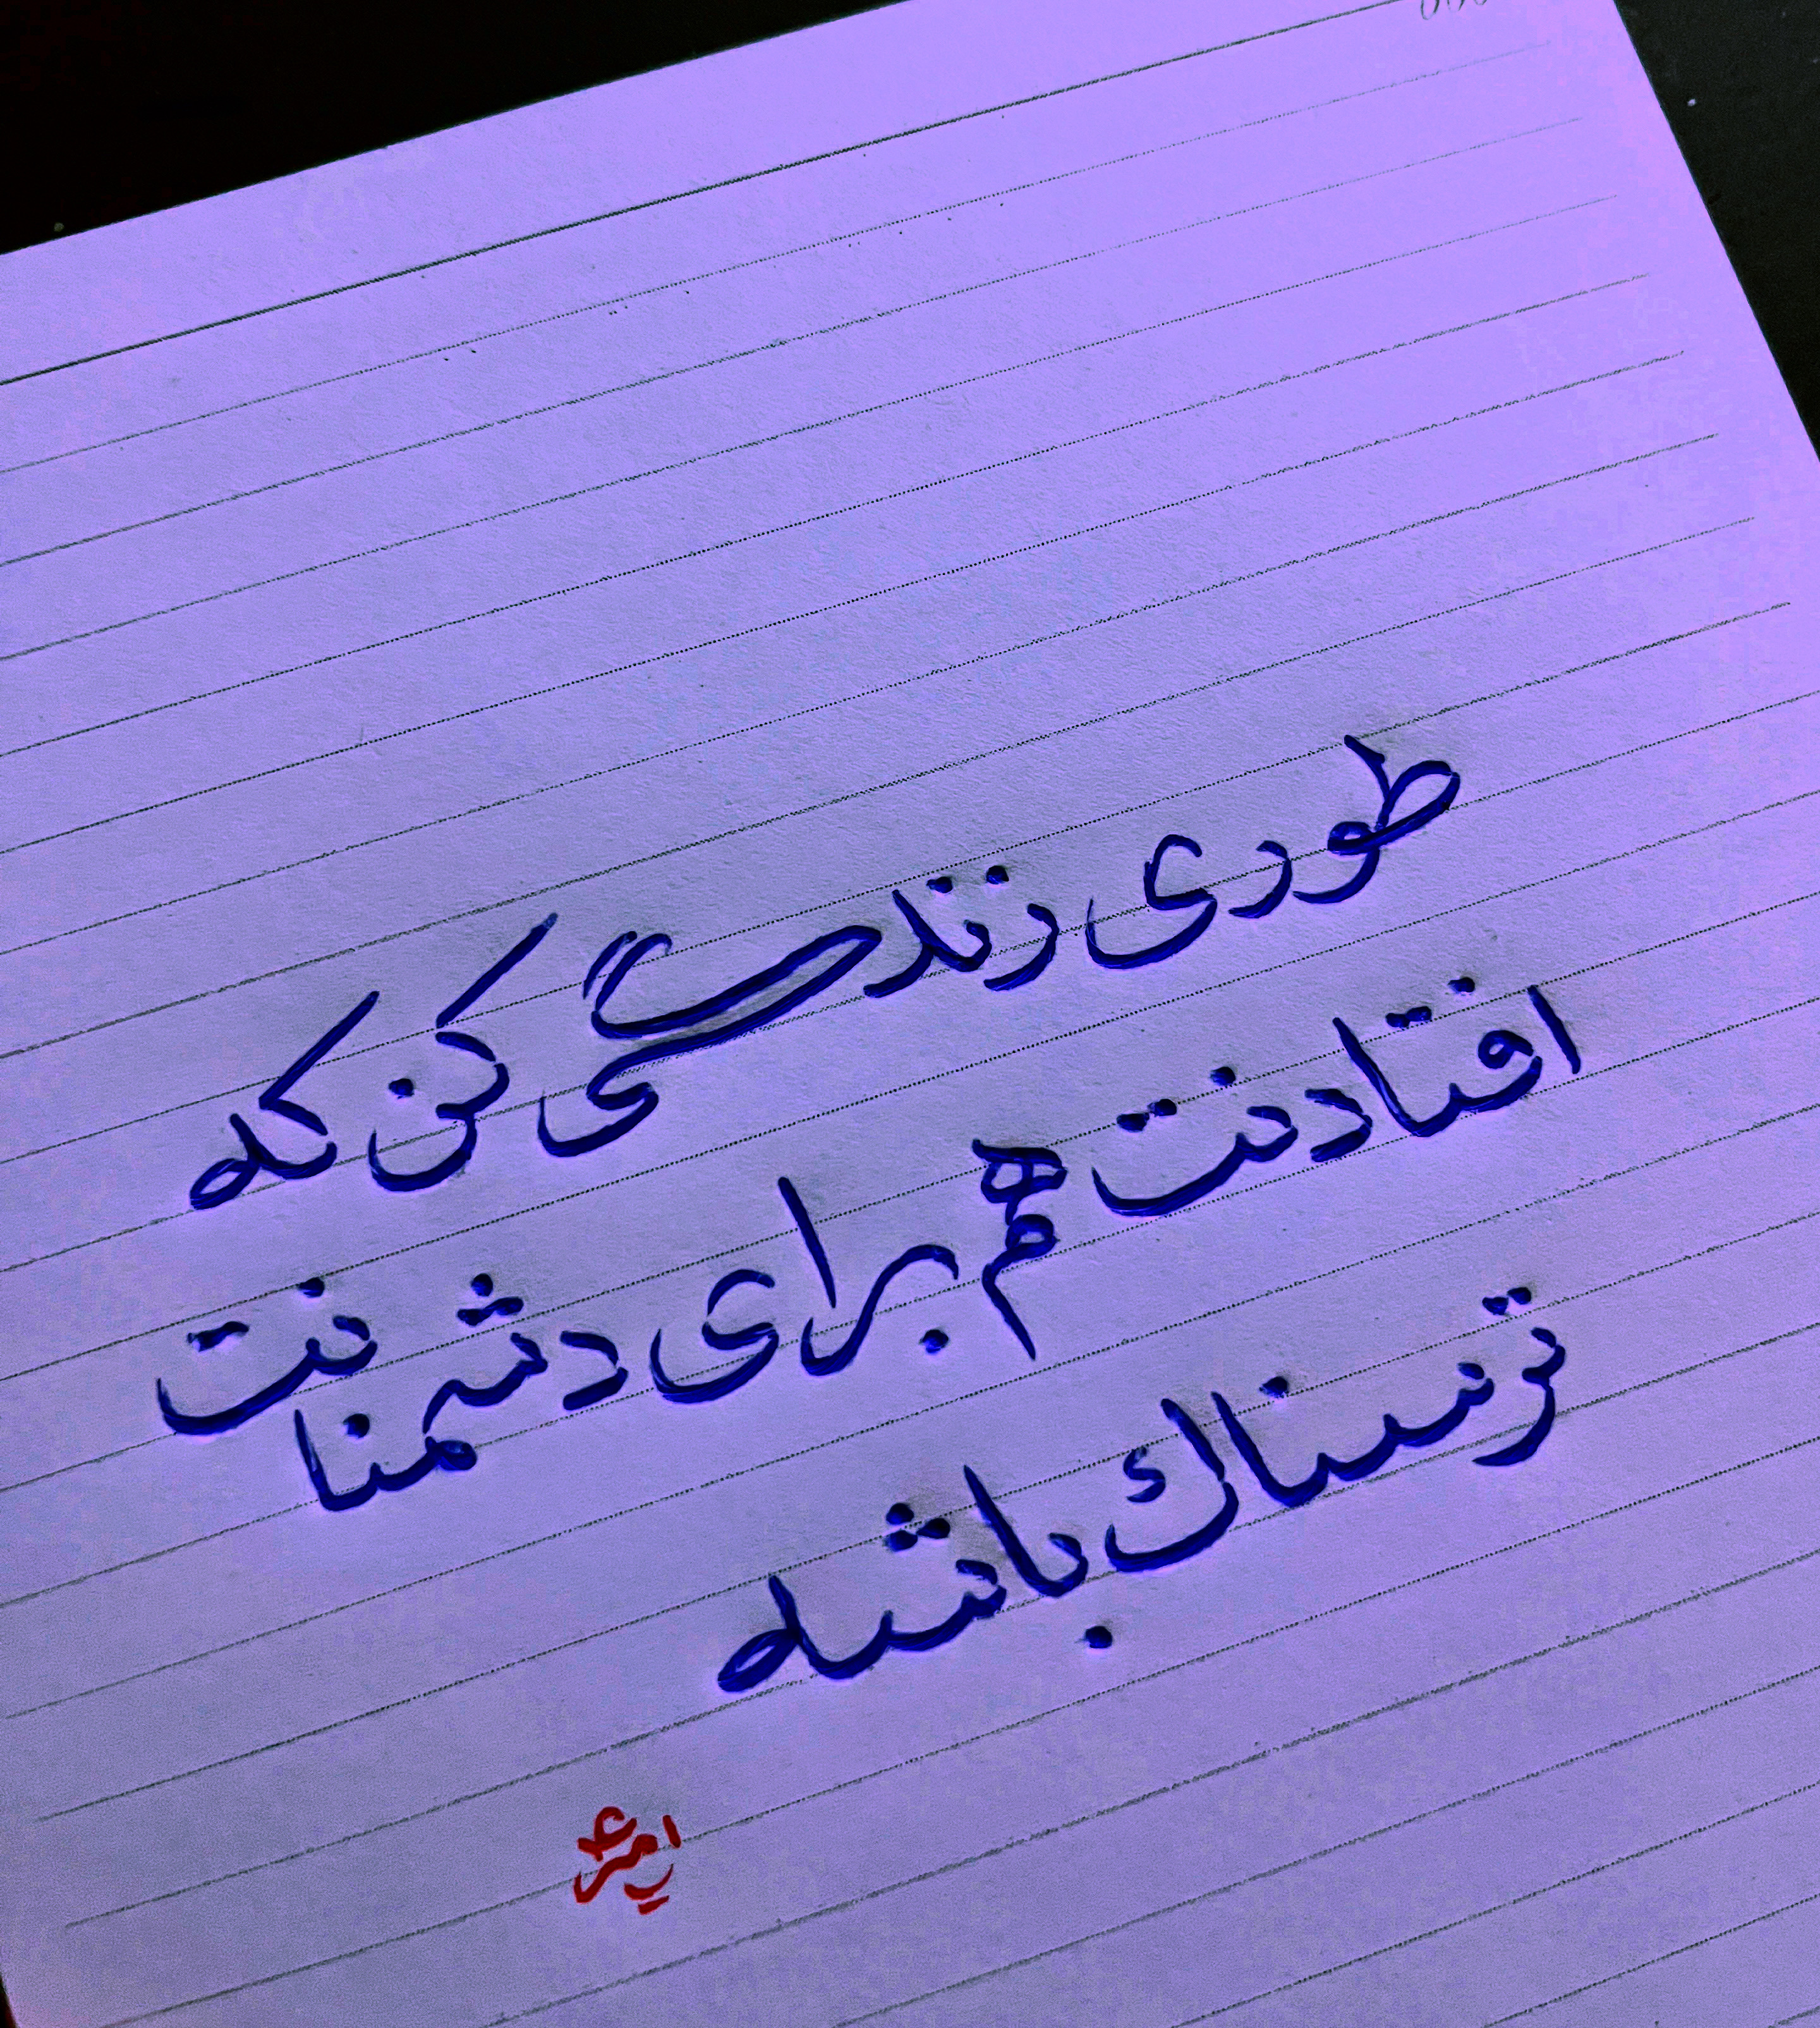 طوری زندگی کن که
افتادنت هم برای دشمنانت
ترسناک باشه